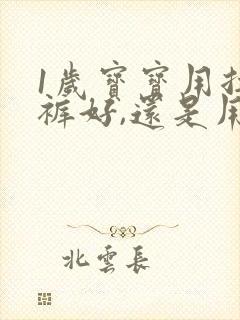 1歲寶寶用拉
褲好,還是用
北雲長